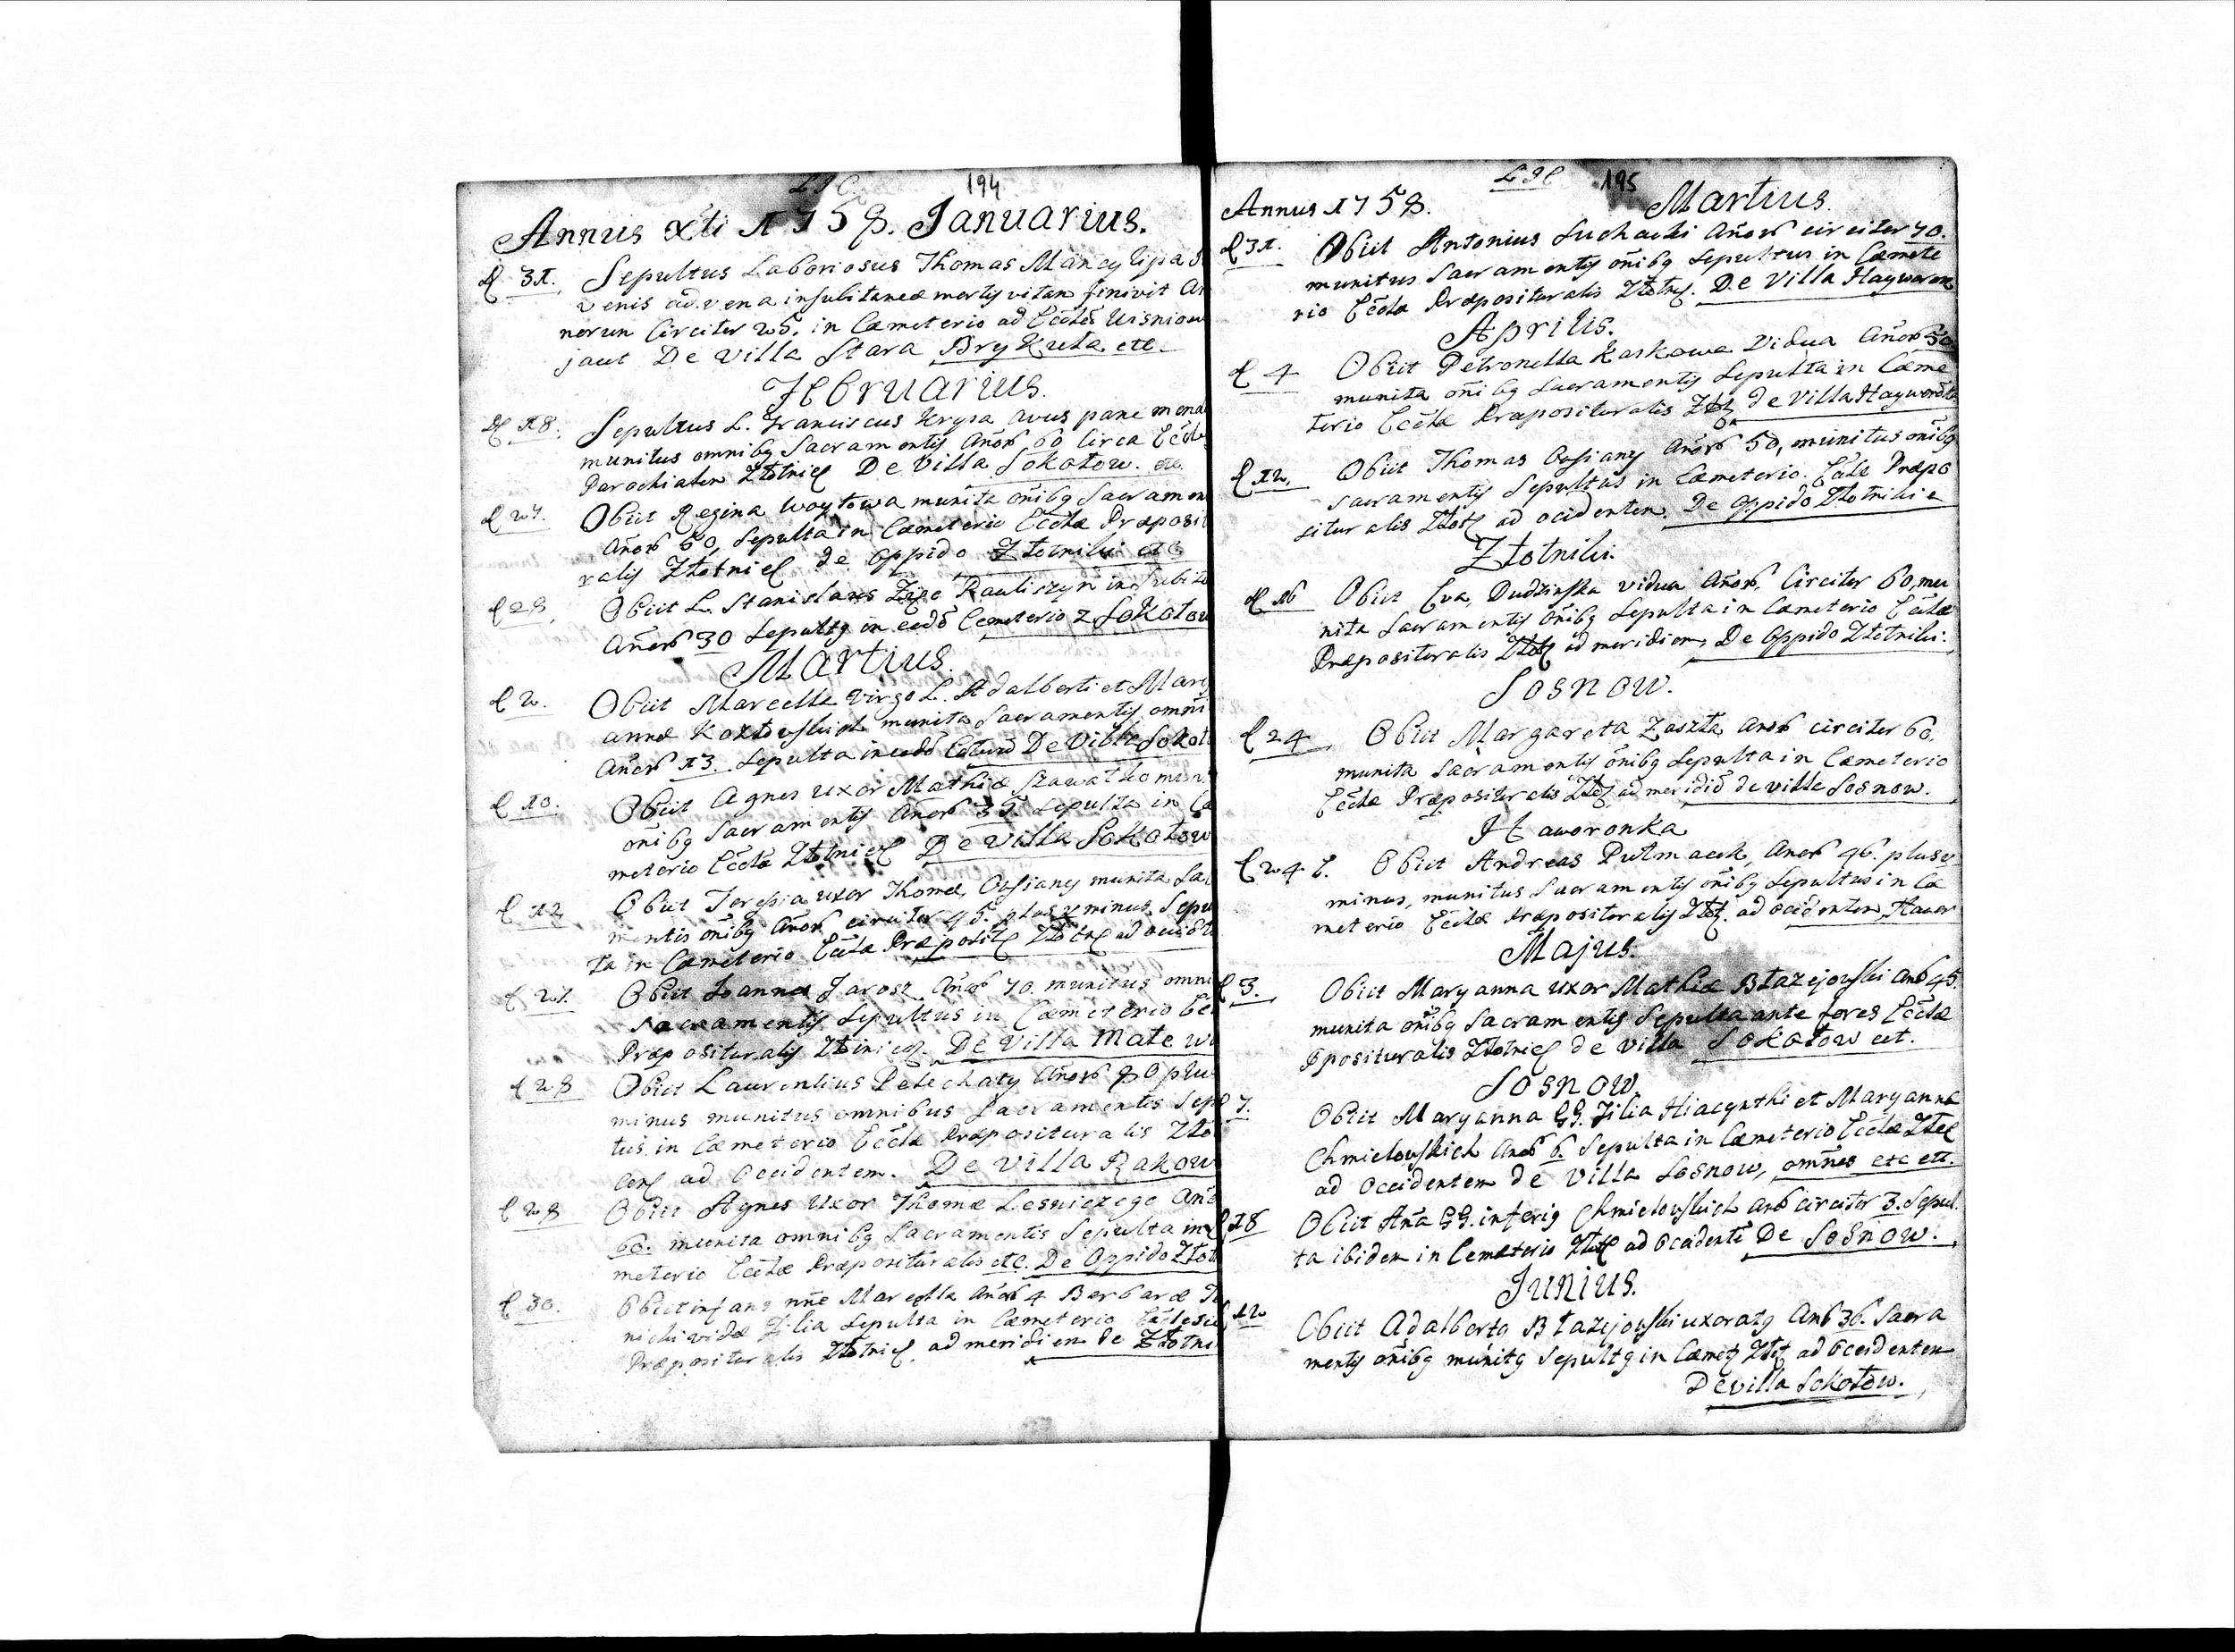 LJC. 194
Annus Xti 1758. Januarius.
d 31. Sepultus Laboriosus Thomas
venis advena insubitanea mortis vitam finivit An
norum Circiter 25. in Cæmeterio ad Eccłã Uisniow
De Villa Stara Brykula etc.
Februarius.
d 18. Sepultus L. Franciscus Krysa Avus pane
munitus omnibg Sacramentis Añorũ 60 Circa
Parochialem Złotnic De Villa Sokołow. etc.
d 27. Obiit Regina Woytowa munita oñibg Sacramen
Añorũ 60, Sepulta in Cæmeterio Eccłæ Præposit
ralis Złotnic de Oppido Złotniki etc
d 28. Obiit L. Stanislaus Pauliszyn
Añorũ 30 Sepultg in eodẽ Cemeterio z Sokołow
Martius.
d 2. Obiit Marcella Virgo L. Adalberti et Mari
annæ Kozłowskich munita Sacramentis omni
Añorũ 13. Sepulta in eodẽ De Villa Sokoł
d 10. Obiit Agnes uxor Mathiæ muni
oñibg Sacramentis Añorũ 35. Sepulta in Cæ
meterio Eccłæ Złotnic De Villa Sokołow
d 12 Obiit Teressia uxor Thomæ Ossiany munita Sac
mentis oñibg Añorũ circiter 45. plus v minus. Sepul
ta in Cæmeterio Eccła Præposit Złotnic ad
d 27. Obiit Joannes Jarosz Añorũ 70. munitus omni
Sacramentis Sepultus in Cæmeterio
Præposituralis De Villa Małe wo
d 28 Obiit Laurentius Pelechaty Añorũ 80 plu
minus munitus omnibus Sacramentis Sep
tus in Cæmeterio Eccłæ Præposituralis Zło
ad Occidentem. De Villa Rakow
d 28 Obiit Agnes Uxor Thomæ Lesniczego Año
60. munita omnibg Sacramentis Sepulta in
meterio Eccłæ Præposituralis etc. De Oppido Złot
d 30. Obiit infans nñe Marcella Añorũ 4 Barbaræ
Filia Sepulta in Cæmeterio
Præposituralis Złotnic ad meridiem de Złotni
LJC 195
Annus 1758. Martius.
d 31. Obiit Antonius Suchacki Añorũ circiter 70.
munitus Sacramentis oñibg Sepultus in Cæmete
rio Eccłæ Præposituralis Złotn. De Villa Hayworon
Aprilis.
d 4 Obiit Petronella Kaskowa Vidua Añorũ 50
munita oñibg Sacramentis Sepulta in Cæme
terio Eccłæ Præposituralis Złot de Villa
d 12. Obiit Thomas Ossiany Añorũ 50, munitus oñibg
Sacramentis Sepultus in Cæmeterio. Eccłæ Præpo
situralis Złot ad ocidentem. De Oppido Złotniki
Złotniki.
d 16 Obiit Eva, Dudzinska vidua Añorũ, Circiter 60, mu
nita Sacramentis oñibg Sepulta in Cæmeterio Eccłæ
Præposituralis Złot ad meridiem, De Oppido Złotniki.
Sosnow.
d 24 Obiit Margareta Zaszła Anorũ circiter 60,
munita Sacramentis oñibg Sepulta in Cæmeterio
Eccłæ Præposituralis Złot ad meridiẽ de villa Sosnow.
Haworonka
d 24 Obiit Andreas Putmacek, Anorũ 46. plus v
minus, munitus Sacramentis oñibg Sepultus in Cæ
meterio Eccłæ Præposituralis Złot. ad occidentem, Hawor
Majus.
d 3. Obiit Maryanna uxor Mathiæ Błazejowski Anorũ 45.
munita oñibg Sacramentis Sepulta ante fores Eccłæ
Pposituralis Złotnic de Villa Sokołow ect.
Sosnow.
d 7. Obiit Maryanna GG. Filia Hiacynthi et Maryannæ
Chmielowskich Anorũ 6. Sepulta in Cæmeterio Eccłæ Złot
ad Occidentem de Villa Sosnow, omñes etc ett.
d 18 Obiit Aña GG. Chmielowskich Anorũ circiter 3. Sepul
ta ibidem in Cemeterio Złot ad Occidentẽ De Sosnow.
Junius.
d 12 Obiit Adalbertg Błazejowski uxoratg Anorũ 36. Sacra
mentis oñibg munitg Sepultg in Cæmet Złot ad Occidentem
De villa Sokołow.